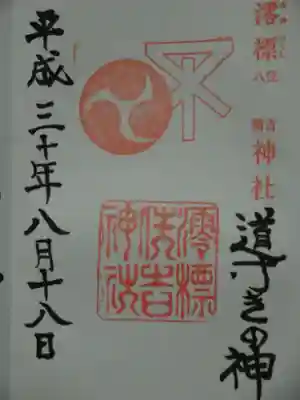 澪標
住吉
神社
道ゆきの神
澪標
住吉
神社
平成三十年八月十八日